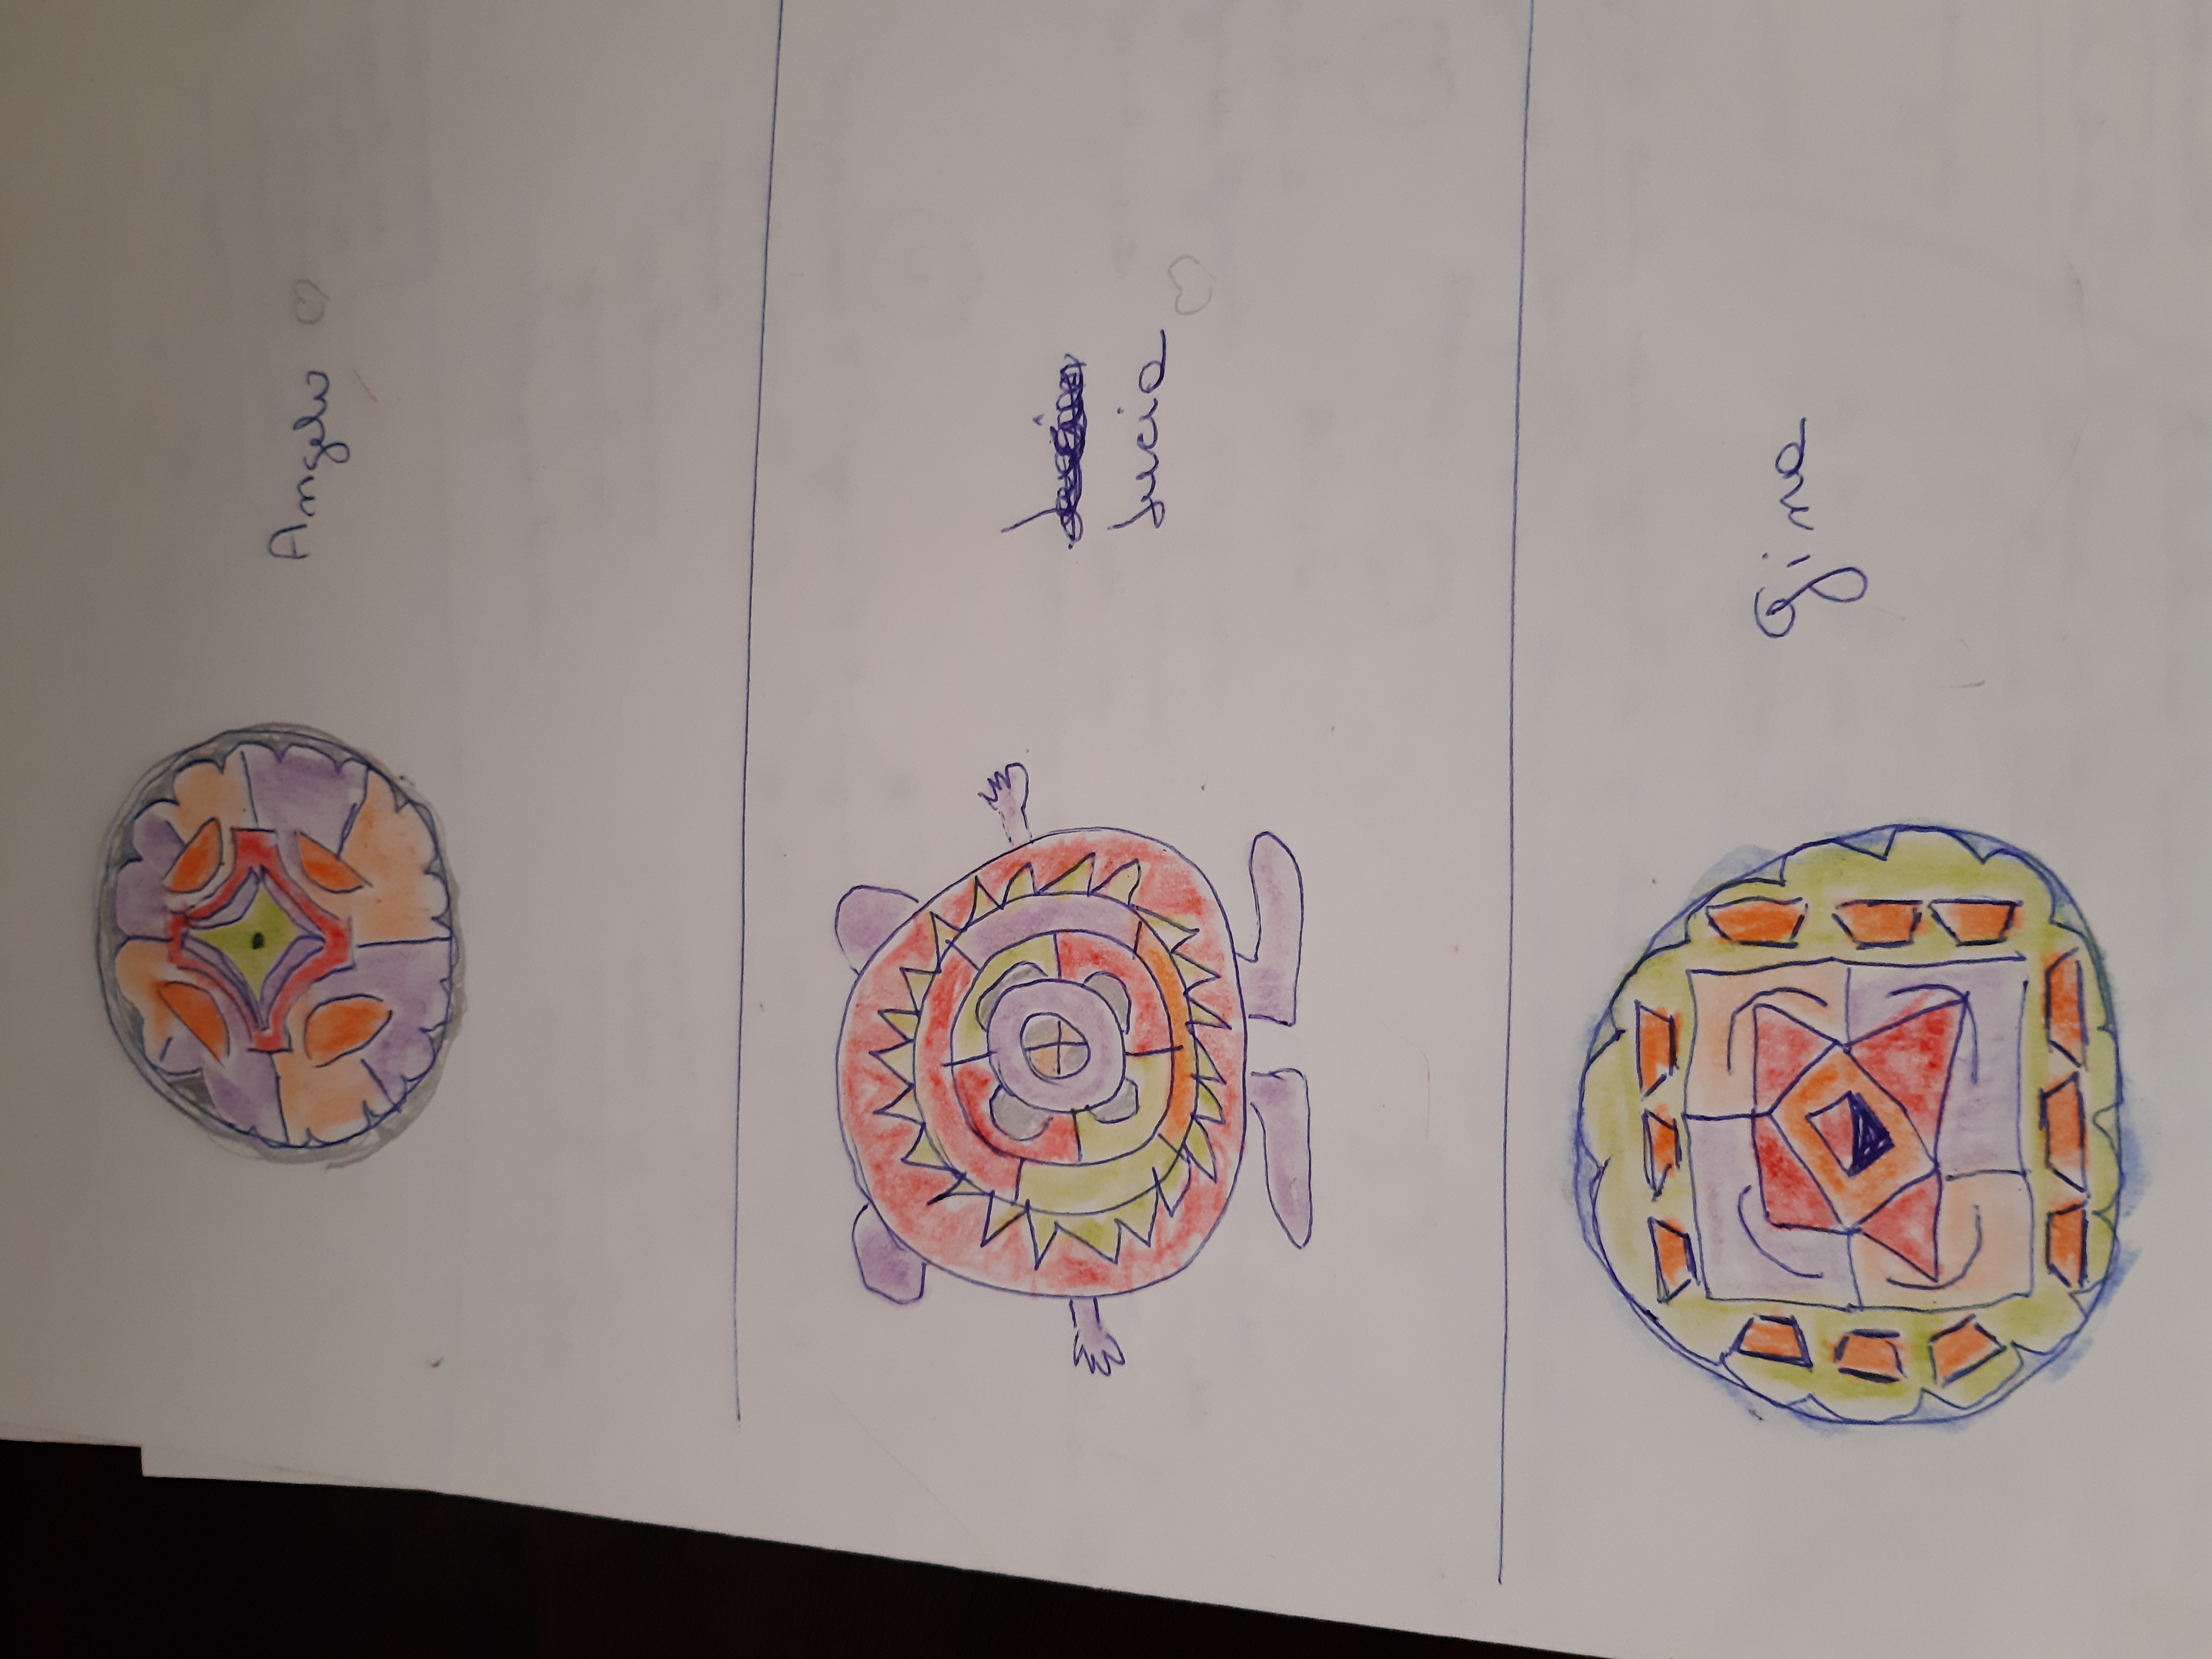 Angelo
Lucia
Gina